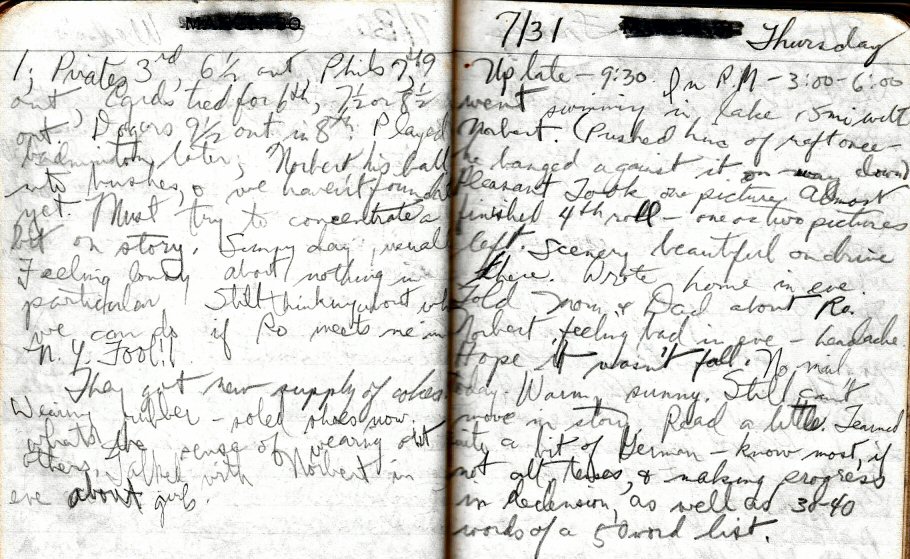 1, Pirates 3rd, 6½ out, Phils 7th, 9
out, Cards tied for 6th, 7½ or 8½
out, Dogers 9½ out in 8th. Played
badminton later; Norbert his ball
into bushes, & we havent found it
yet. Must try to concentrate a
bit on story. Sunny day, usual
Feeling lousy about nothing in
particular. Still thinking about what
we can do if Ro meets me in
N.Y. Fool!!
They got new supply of cokes
Wearing rubber-soled shoes now,
whats the sense of wearing out
others. Talked with Norbert in
eve about girls.
7/31
Thursday
Up late - 9:30. In P.M - 3:00-6:00
went swimming in lake 15 mi with
Norbert. (Pushed him of raft once -
he banged against it on way down)
Pleasant. Took one picture. Almost
finished 4th roll - one or two pictures
left. Scenery beautiful on drive
there. Wrote home in eve.
Told Mom & Dad about Ro.
Norbert feeling bad in eve - headache
Hope it wasn't fall. No mail
today. Warm, sunny. Still can't
move in story. Read a little. Learned
quite a bit of German - know most, if
not all, tenses, & making progress
in declension, as well as 30-40
words of a 50 word list.